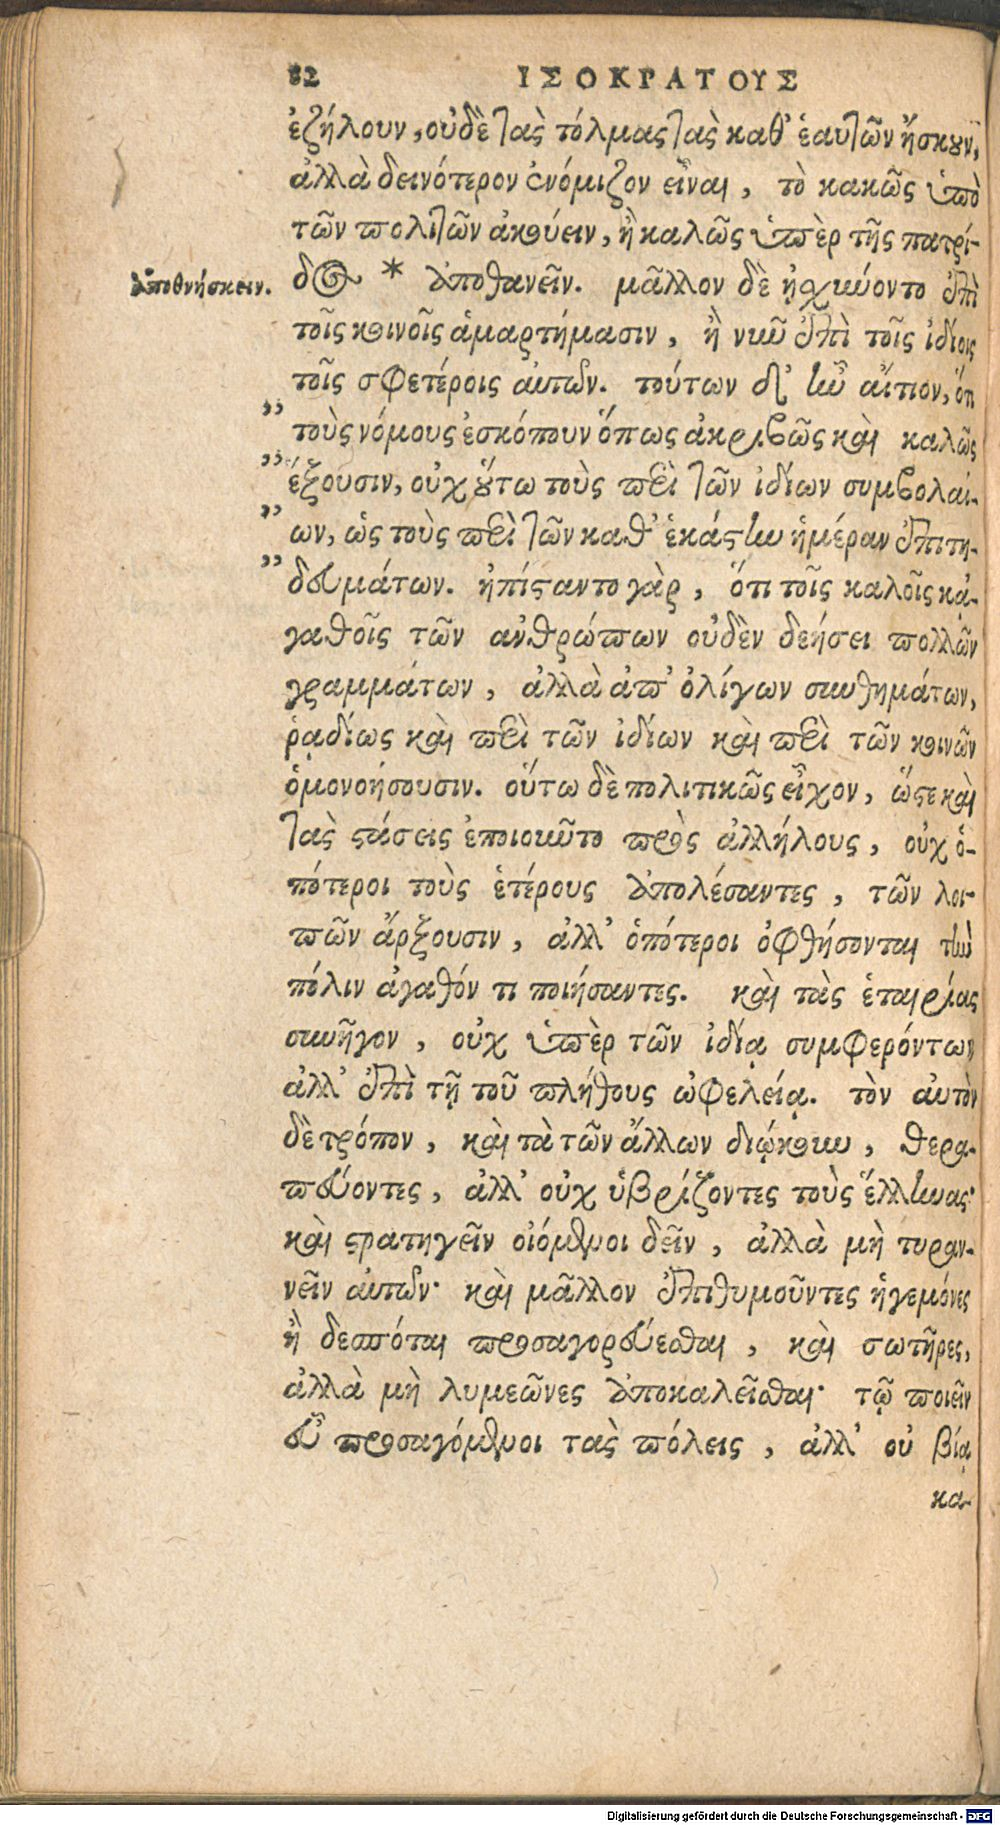 82 ΙΣΟΚΡΑΤΟΥΣ
ἐζήλουν, οὐδὲ τὰς τόλμας τὰς καθ' ἑαυτῶν ἤσκουν,
ἀλλὰ δεινότερον ἐνόμιζον εἶναι, τὸ κακῶς ὑπὸ
τῶν πολιτῶν ἀκούειν, ἢ καλῶς ὑπὲρ τῆς πατρί-
Ἀποθνήσκειν.
δος * ἀποθανεῖν. μᾶλλον δὲ ᾐσχύνοντο ἐπὶ
τοῖς κοινοῖς ἁμαρτήμασιν, ἢ νῦν ἐπὶ τοῖς ἰδίοις
τοῖς σφετέροις αὐτῶν. τούτων δ' ἦν αἴτιον, ὅτι
" τοὺς νόμους ἐσκόπουν ὅπως ἀκριβῶς καὶ καλῶς
" ἕξουσιν, οὐχ οὕτω τοὺς περὶ τῶν ἰδίων συμβολαί-
" ων, ὡς τοὺς περὶ τῶν καθ' ἑκάστην ἡμέραν ἐπιτη-
" δευμάτων. ἠπίσταντο γὰρ, ὅτι τοῖς καλοῖς κἀ-
γαθοῖς τῶν ἀνθρώπων οὐδὲν δεήσει πολλῶν
γραμμάτων, ἀλλὰ ἀπ' ὀλίγων συνθημάτων,
ῥᾳδίως καὶ περὶ τῶν ἰδίων καὶ περὶ τῶν κοινῶν
ὁμονοήσουσιν. οὕτω δὲ πολιτικῶς εἶχον, ὥστε καὶ
τὰς στάσεις ἐποιοῦντο πρὸς ἀλλήλους, οὐχ ὁ-
πότεροι τοὺς ἑτέρους ἀπολέσαντες, τῶν λοι-
πῶν ἄρξουσιν, ἀλλ' ὁπότεροι ὀφθήσονται τὴν
πόλιν ἀγαθόν τι ποιήσαντες. καὶ τὰς ἑταιρίας
συνῆγον, οὐχ ὑπὲρ τῶν ἰδίᾳ συμφερόντων
ἀλλ' ἐπὶ τῇ τοῦ πλήθους ὠφελείᾳ. τὸν αὐτὸν
δὲ τρόπον, καὶ τὰ τῶν ἄλλων διῴκουν, θερα-
πεύοντες, ἀλλ' οὐχ ὑβρίζοντες τοὺς ἕλληνας·
καὶ στρατηγεῖν οἰόμενοι δεῖν, ἀλλὰ μὴ τυραν-
νεῖν αὐτῶν· καὶ μᾶλλον ἐπιθυμοῦντες ἡγεμόνες
ἢ δεσπόται προσαγορεύεσθαι, καὶ σωτῆρες,
ἀλλὰ μὴ λυμεῶνες ἀποκαλεῖσθαι· τῷ ποιεῖν
εὖ προσαγόμενοι τὰς πόλεις, ἀλλ' οὐ βίᾳ
κα-
Digitalisierung gefördert durch die Deutsche Forschungsgemeinschaft - DFG